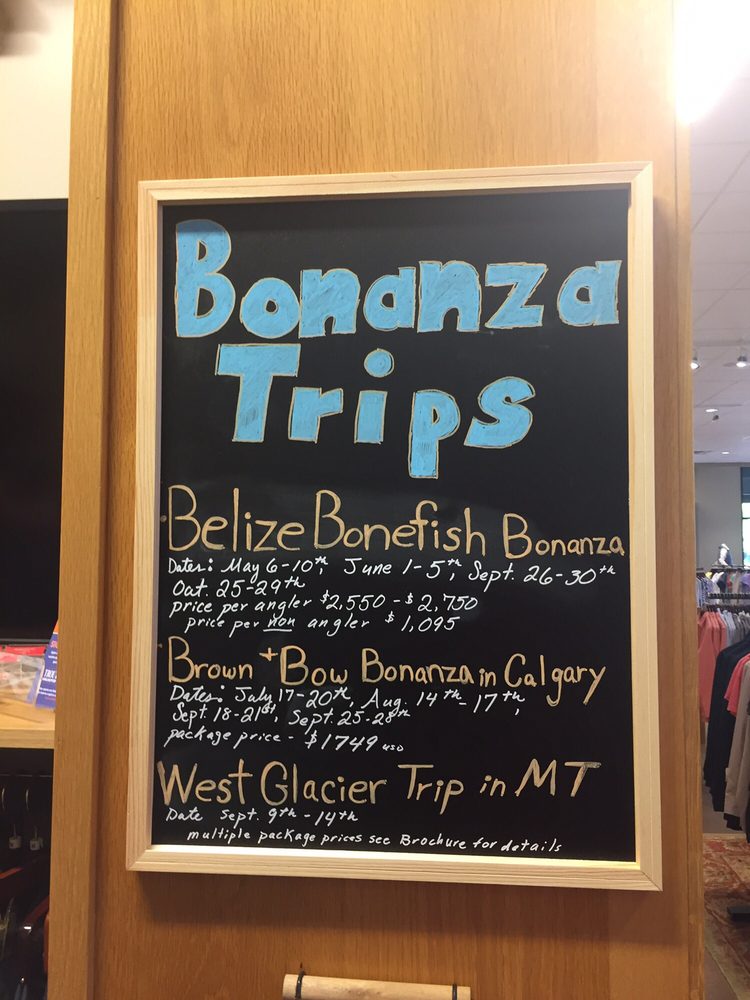 Bonanza
Trips
Belize Bonefish Bonanza
Dates: May 6-10th, June 1-5th, Sept. 26-30th
Oct. 25-29th
price per angler $2,550 - $2,750
price per non angler $1,095
Brown + Bow Bonanza in Calgary
Dates: July 17-20th, Aug. 14th-17th,
Sept. 18-21st, Sept. 25-28th
package price - $1749 USD
West Glacier Trip in MT
Date Sept. 9th-14th
multiple package prices see Brochure for details